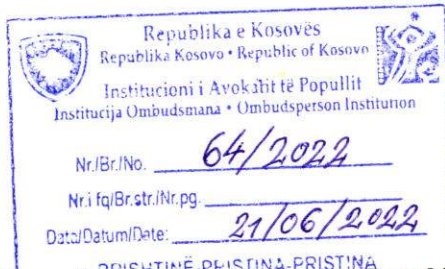 Republika e Kosovës
Republika Kosovo • Republic of Kosovo
Institucioni i Avokatit të Popullit
Institucija Ombudsmana • Ombudsperson Institution
Nr./Br./No. 64/2022
Nr.i fq/Br.str./Nr.pg.
Data/Datum/Date: 21/06/2022
PRISHTINË-PRISTINA-PRISTINA